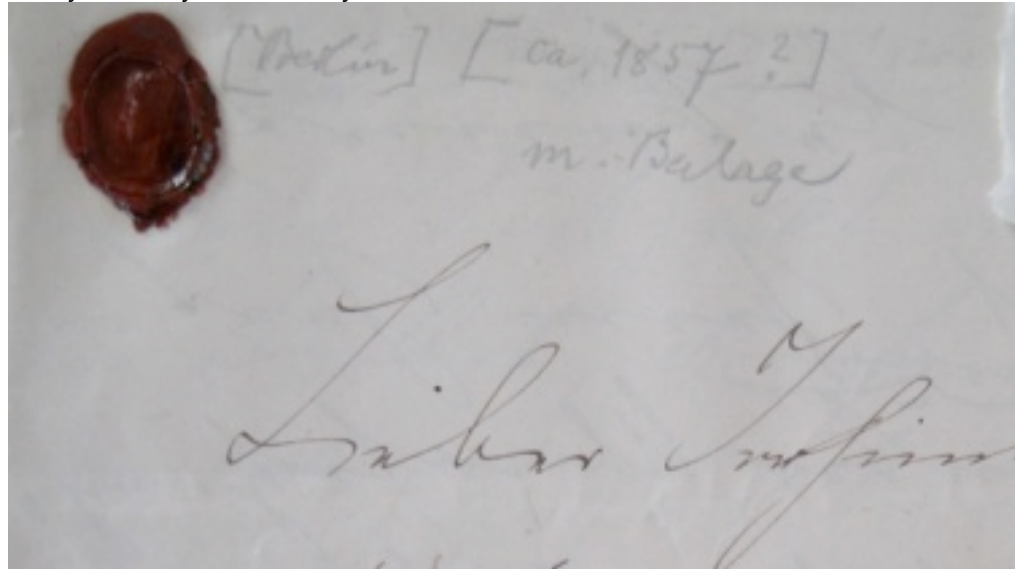 [Berlin] [ca. 1857 ?]
m. Beilage
Lieber Joachim